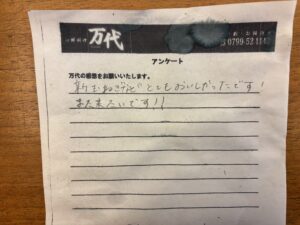 万代
0799-52-11
アンケート
万代の感想をお願いいたします。
新玉ねぎ とてもおいしかったです!
また来たいです!!